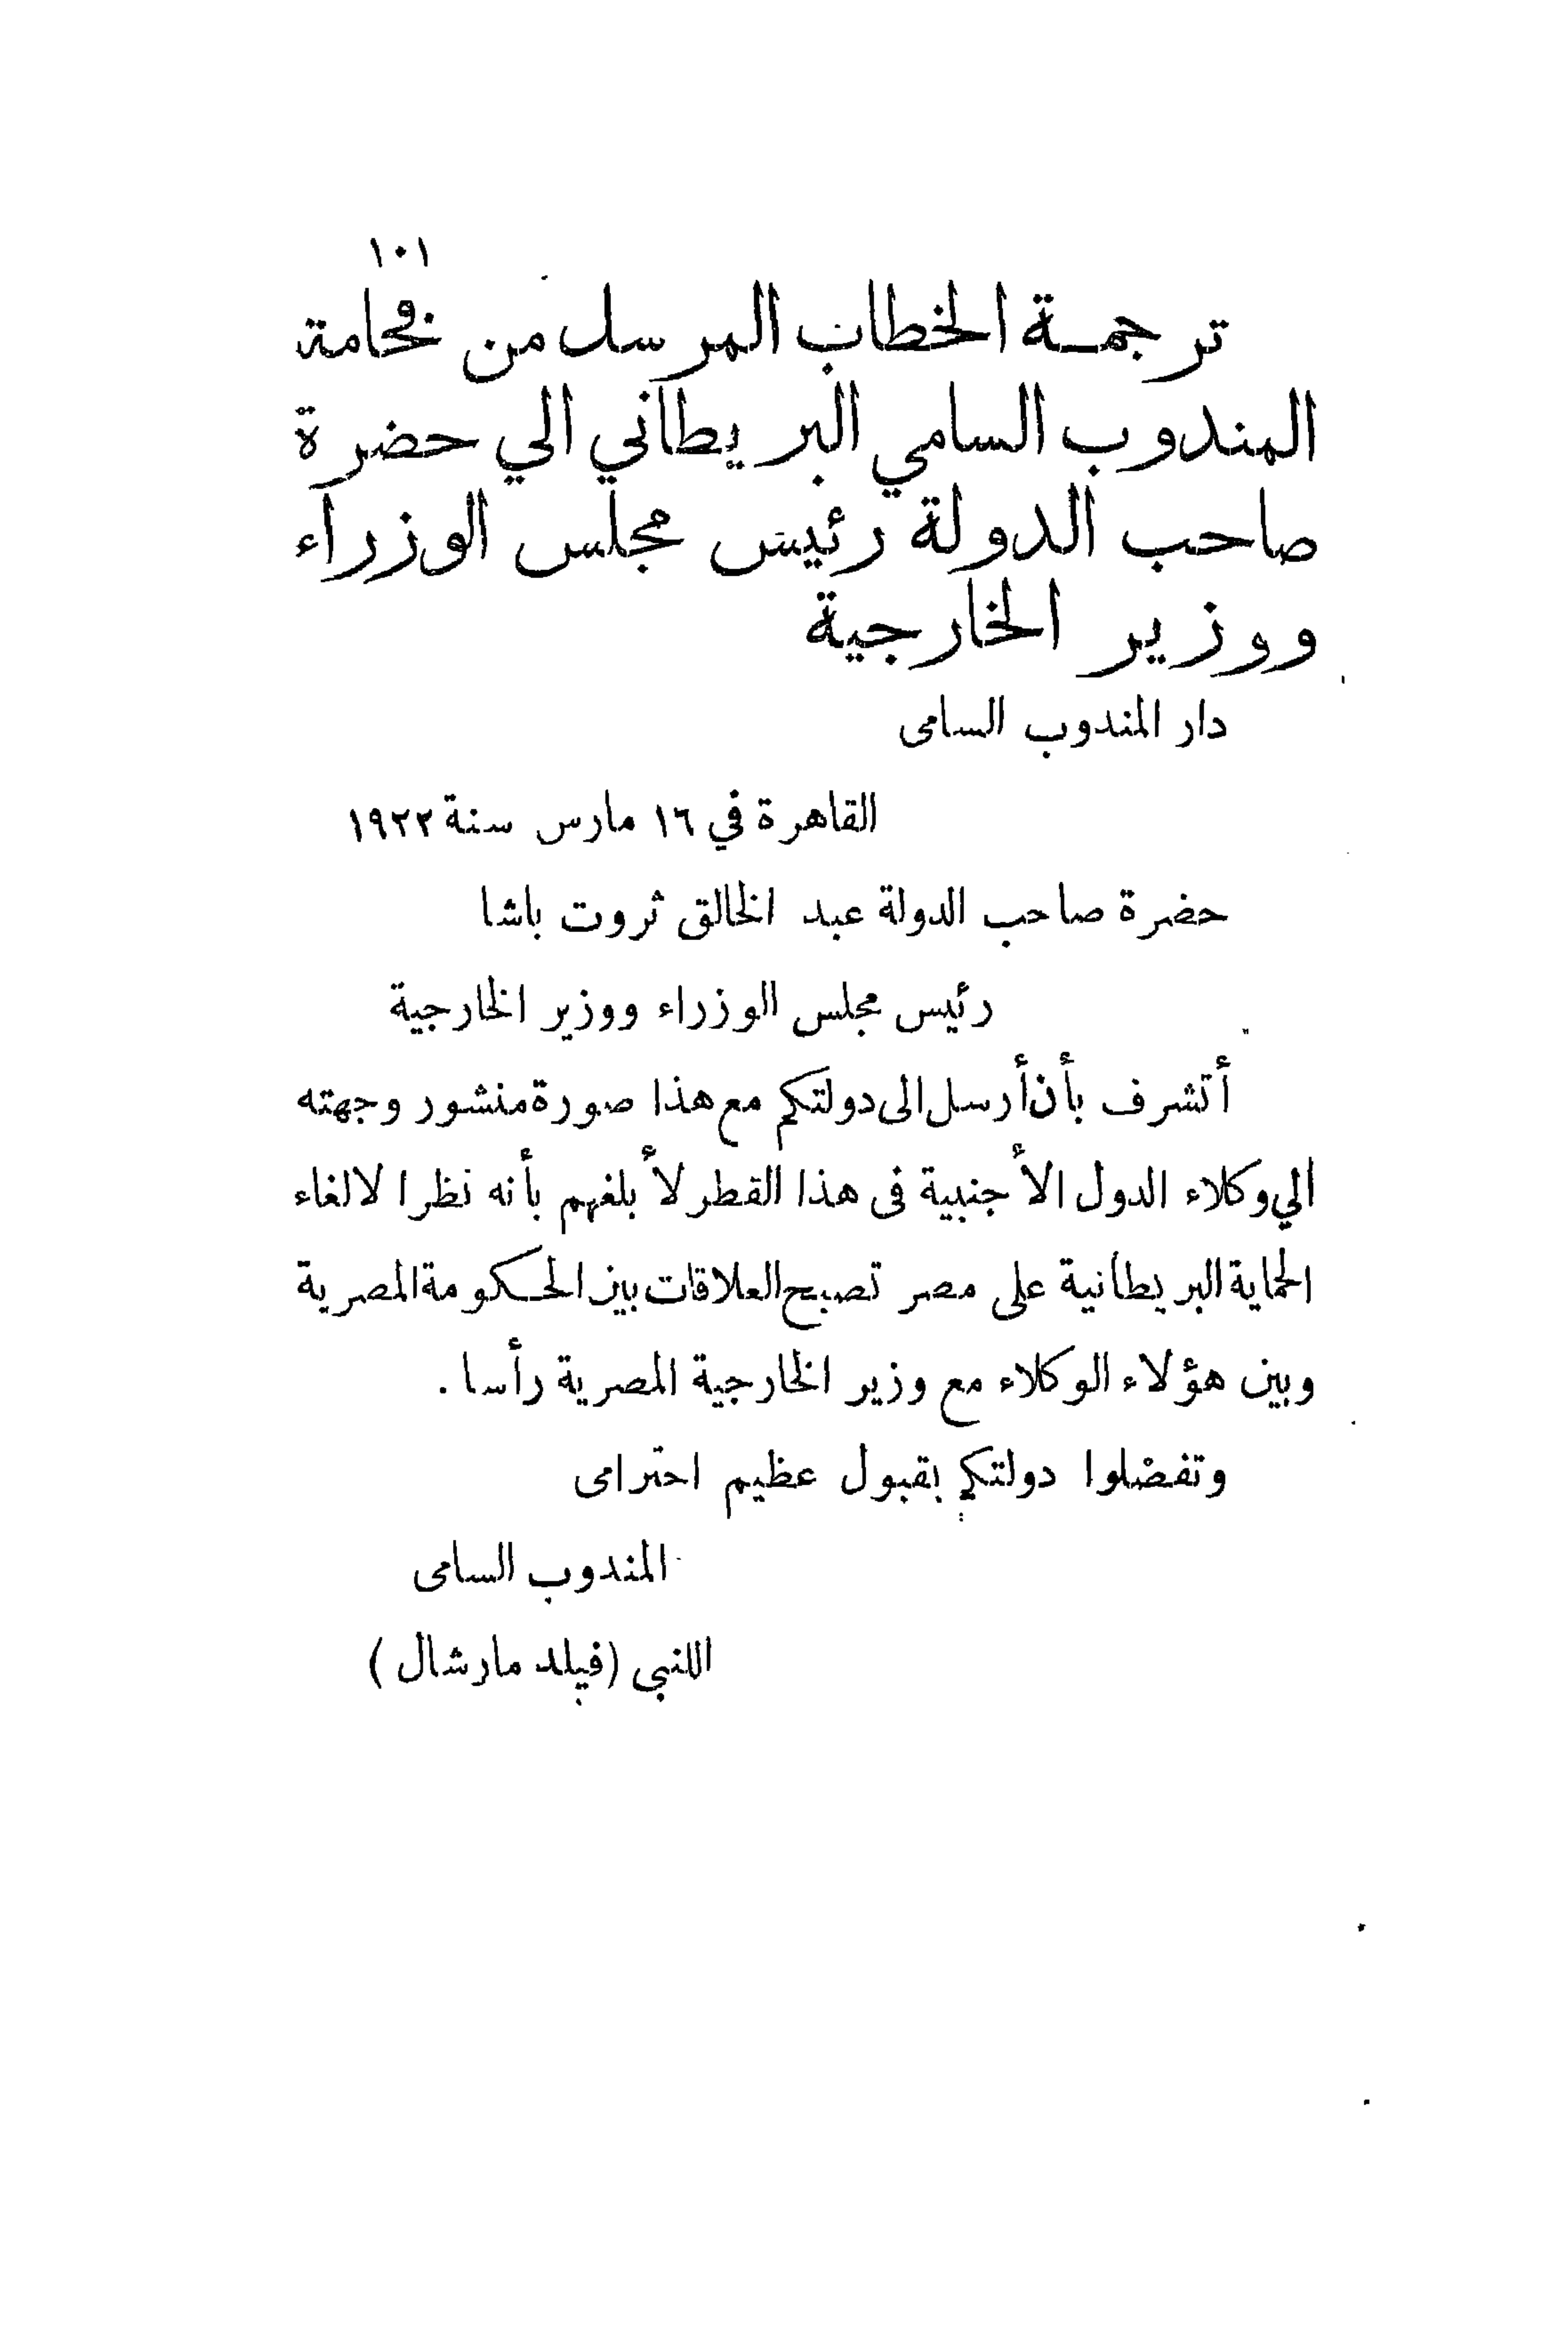 ١٠١
ترجمة الخطاب المرسل من فخامة
المندوب السامي البريطاني الي حضرة
صاحب الدولة رئيس مجلس الوزراء
ووزير الخارجية
دار المندوب السامى
القاهرة في ١٦ مارس سنة ١٩٢٢
حضرة صاحب الدولة عبد الخالق ثروت باشا
رئيس مجلس الوزراء ووزير الخارجية
أتشرف بأن أرسل الى دولتكم مع هذا صورة منشور وجهته
الي وكلاء الدول الأجنبية فى هذا القطر لأبلغهم بأنه نظرا لالغاء
الحماية البريطانية على مصر تصبح العلاقات بين الحكومة المصرية
وبين هؤلاء الوكلاء مع وزير الخارجية المصرية رأسا .
وتفضلوا دولتكم بقبول عظيم احترامى
المندوب السامى
اللنبى (فيلد مارشال)